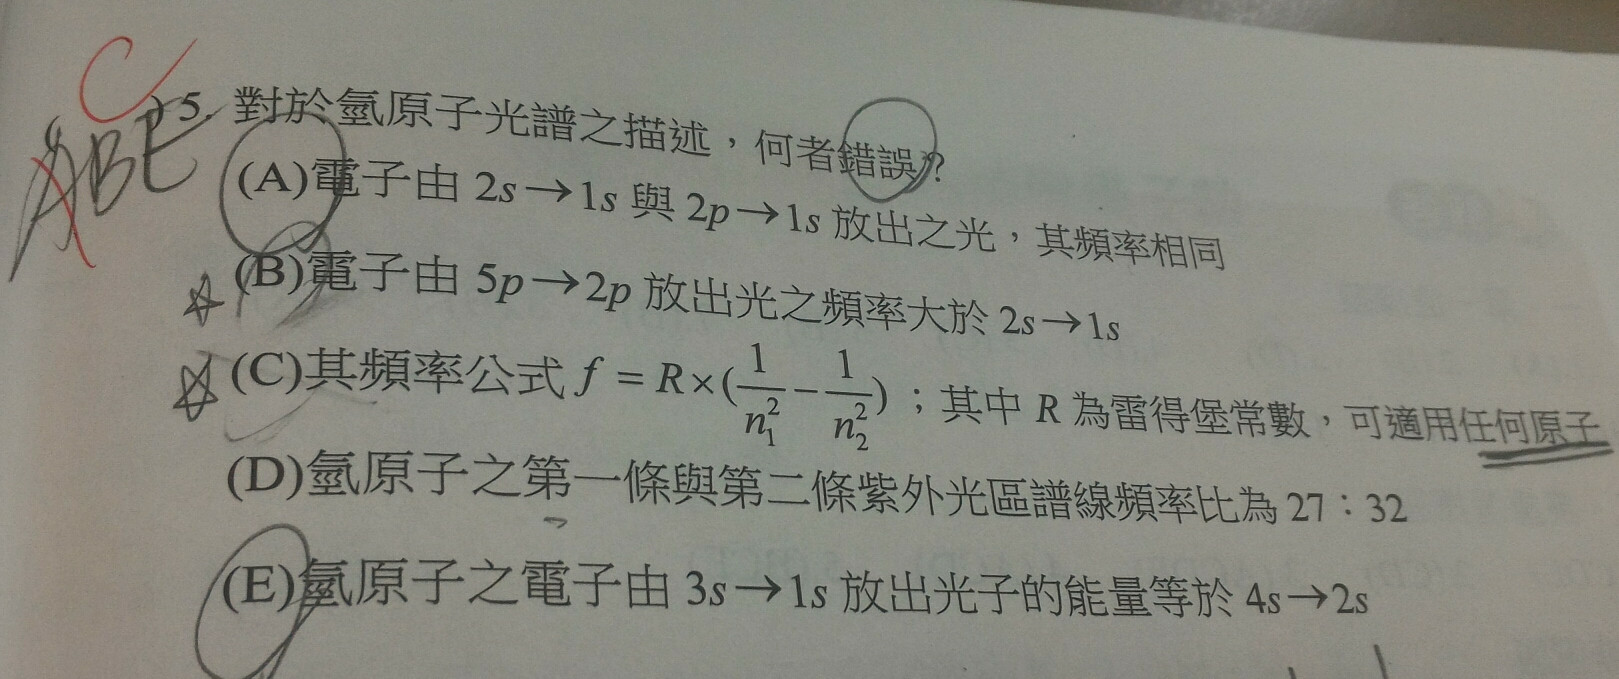 C
ABE
)5. 對於氫原子光譜之描述，何者錯誤？
(A)電子由 2s→1s 與 2p→1s 放出之光，其頻率相同
(B)電子由 5p→2p 放出光之頻率大於 2s→1s
(C)其頻率公式 f = R×(1/n₁² − 1/n₂²)；其中 R 為雷得堡常數，可適用任何原子
(D)氫原子之第一條與第二條紫外光區譜線頻率比為 27：32
(E)氫原子之電子由 3s→1s 放出光子的能量等於 4s→2s